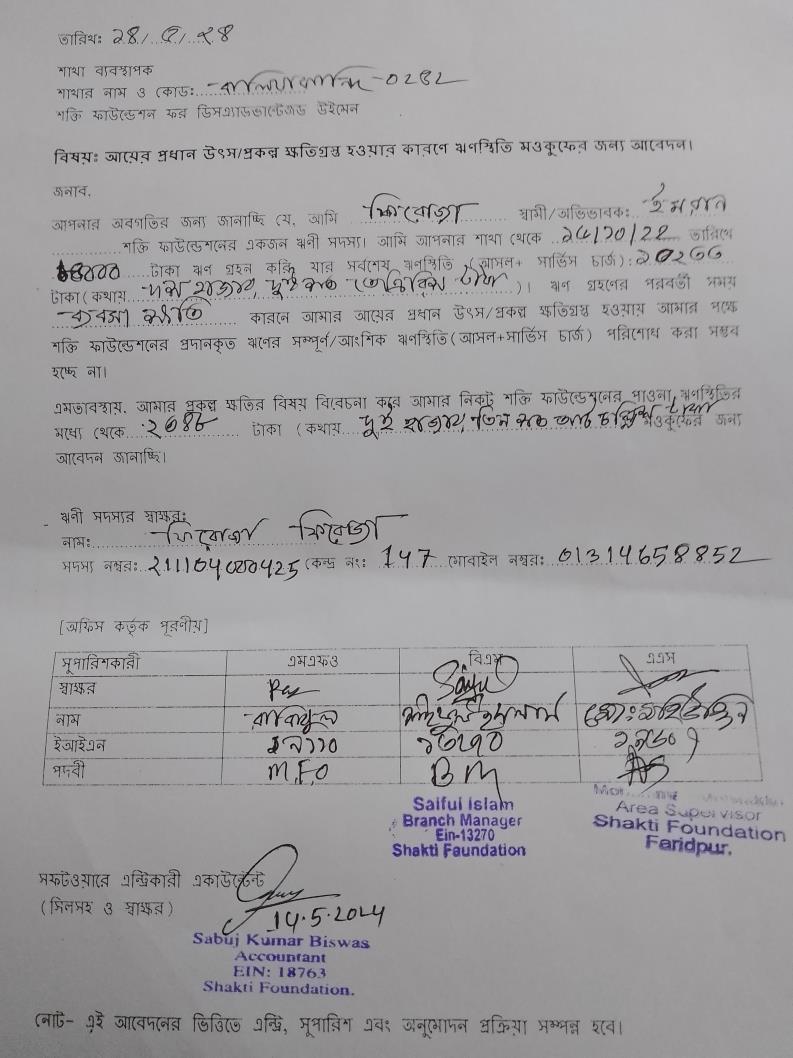 তারিখঃ ১৪/৫/২৪
শাখা ব্যবস্থাপক
শাখার নাম ও কোডঃ বালিয়াকান্দি-0282
শক্তি ফাউন্ডেশন ফর ডিসএ্যাডভান্টেজড উইমেন
বিষয়ঃ আয়ের প্রধান উৎস/প্রকল্প ক্ষতিগ্রস্থ হওয়ার কারণে ঋণস্থিতি মওকুফের জন্য আবেদন।
জনাব,
আপনার অবগতির জন্য জানাচ্ছি যে, আমি ফিরোজা স্বামী/অভিভাবকঃ ইমরান
শক্তি ফাউন্ডেশনের একজন ঋনী সদস্য। আমি আপনার শাখা থেকে তারিখে
টাকা ঋণ গ্রহন করি যার সর্বশেষ ঋণস্থিতি (আসল+ সার্ভিস চার্জ):
টাকা (কথায় দশ হাজার, দুই শত তেত্রিশ টাকা )। ঋণ গ্রহণের পরবর্তী সময়
ব্যবসা ক্ষতি কারনে আমার আয়ের প্রধান উৎস/প্রকল্প ক্ষতিগ্রস্ত হওয়ায় আমার পক্ষে
শক্তি ফাউন্ডেশনের প্রদানকৃত ঋণের সম্পূর্ণ/আংশিক ঋণস্থিতি(আসল+সার্ভিস চার্জ) পরিশোধ করা সম্ভব
হচ্ছে না।
এমতাবস্থায়, আমার প্রকল্প ক্ষতির বিষয় বিবেচনা করে আমার নিকট শক্তি ফাউন্ডেশনের পাওনা ঋণস্থিতির
মধ্যে থেকে টাকা (কথায় দুই হাজার, তিন শত আট চল্লিশ টাকা মওকুফের জন্য
আবেদন জানাচ্ছি।
ঋনী সদস্যর স্বাক্ষরঃ
নামঃ ফিরোজা ফিরোজা
সদস্য নম্বরঃ 211104000425 কেন্দ্র নংঃ 147 মোবাইল নম্বরঃ 01314658852
[অফিস কর্তৃক পূরণীয়]
সুপারিশকারী এমএফও বিএম এএস
স্বাক্ষর
নাম রবিউল সাইফুল ইসলাম
ইআইএন ১৩২৭০
পদবী M.F.O BM AS
Saiful Islam
Branch Manager
Ein-13270
Shakti Faundation
Area Supervisor
Shakti Foundation
Faridpur.
সফটওয়ারে এন্ট্রিকারী একাউন্টেন্ট
(সিলসহ ও স্বাক্ষর)
14.5.2024
Sabuj Kumar Biswas
Accountant
EIN: 18763
Shakti Foundation.
নোট- এই আবেদনের ভিত্তিতে এন্ট্রি, সুপারিশ এবং অনুমোদন প্রক্রিয়া সম্পন্ন হবে।